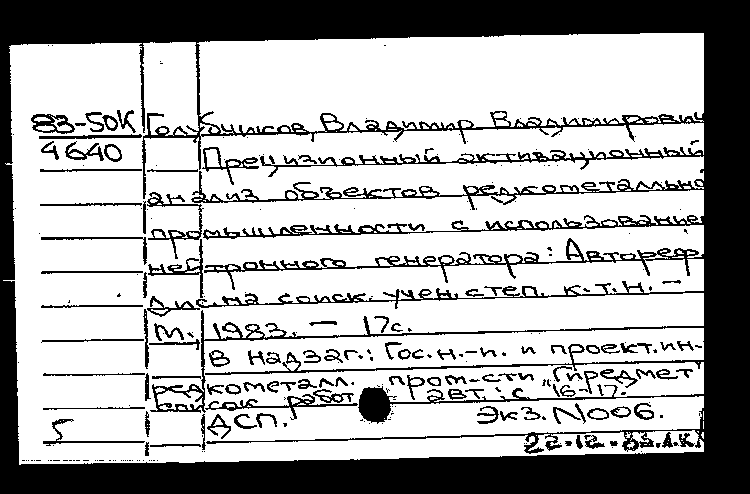 83-50К Голубчиков, Владимир Владимирович
4640 Прецизионный активационный
анализ объектов редкометально
промышленности с использование
нейтронного генератора: Автореф.
дис. на соиск. учен. степ. к.т.н. —
М., 1983. — 17с.
В надзаг.: Гос. н.-и. и проект. ин-
редкометалл. пром-сти „Гиредмет"
список работ авт.: с 16-17.
5 ДСП. Экз. N006.
22.12.83.А.К.